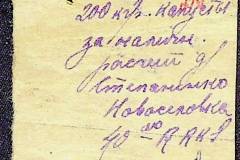 200 кгр. капусты
за налич.
расчет
Степаненко
Новоселовка
40